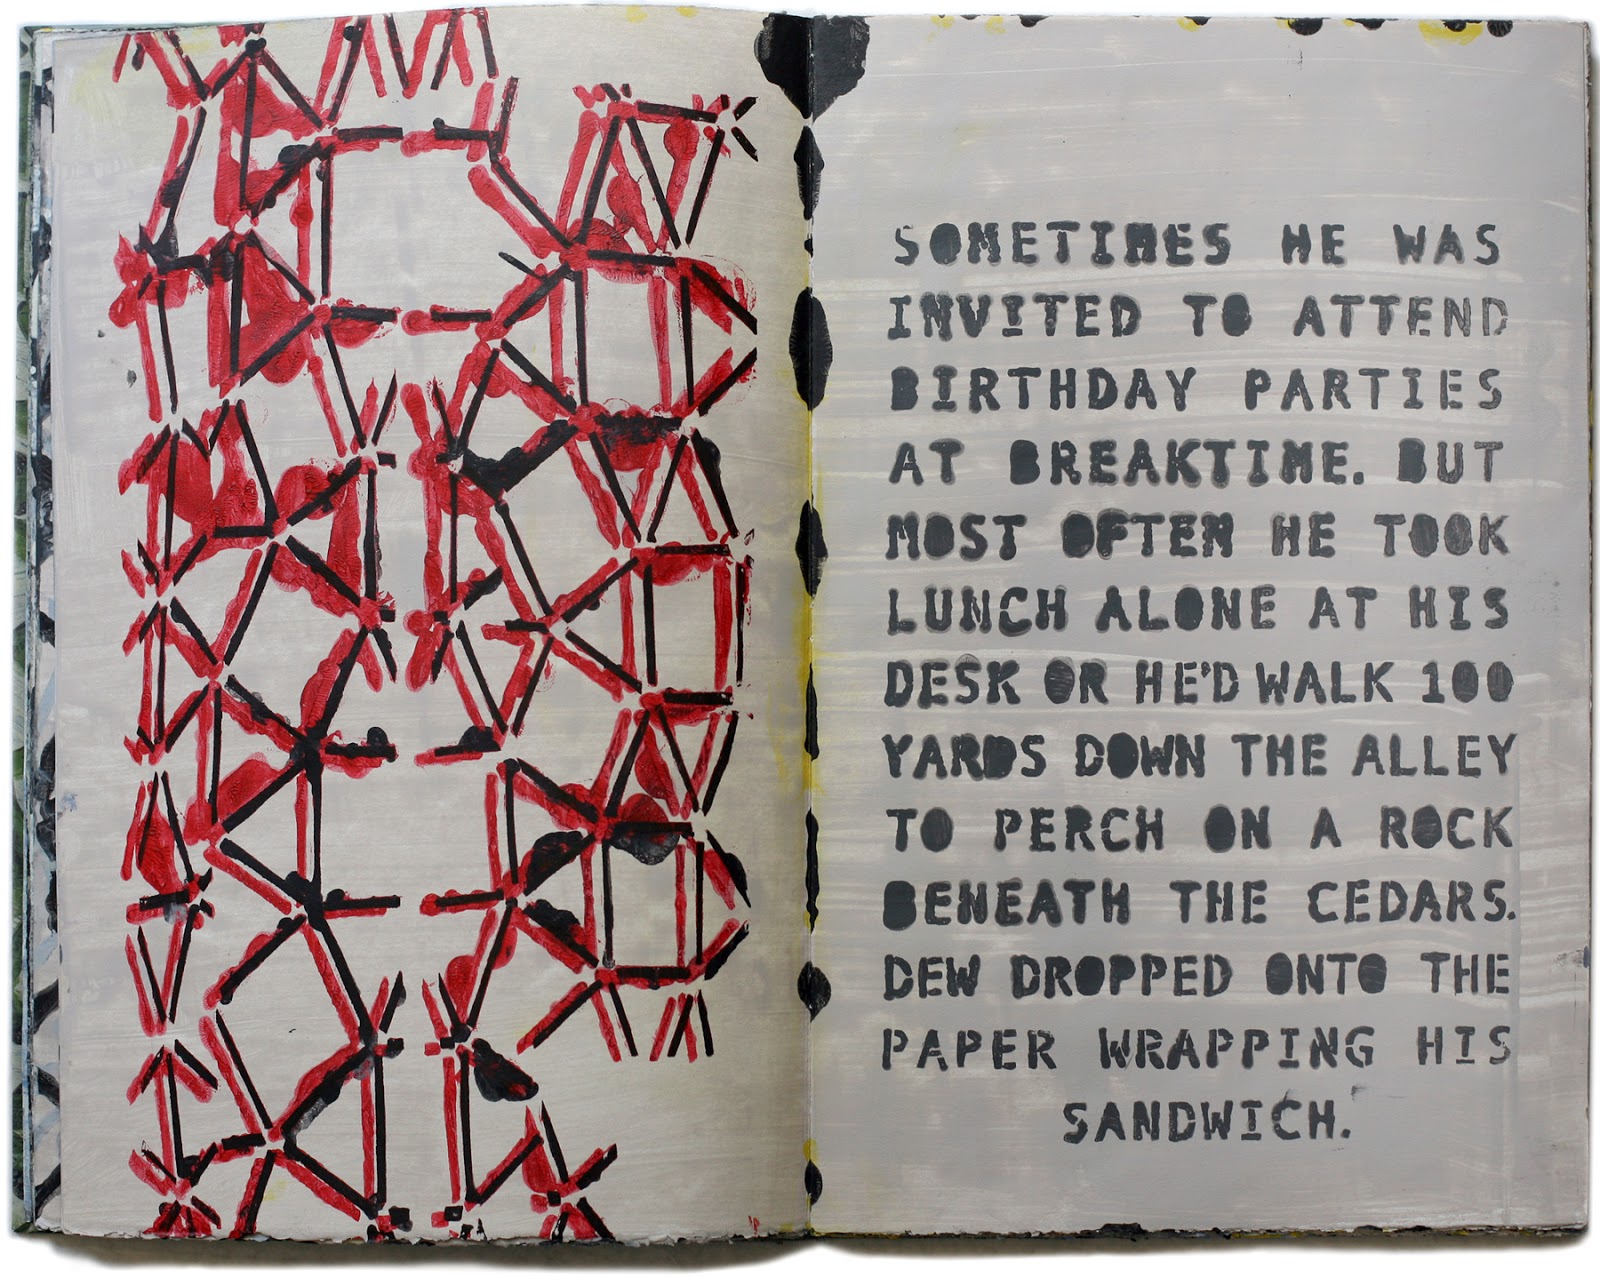 SOMETIMES HE WAS
INVITED TO ATTEND
BIRTHDAY PARTIES
AT BREAKTIME. BUT
MOST OFTEN HE TOOK
LUNCH ALONE AT HIS
DESK OR HE'D WALK 100
YARDS DOWN THE ALLEY
TO PERCH ON A ROCK
BENEATH THE CEDARS.
DEW DROPPED ONTO THE
PAPER WRAPPING HIS
SANDWICH.